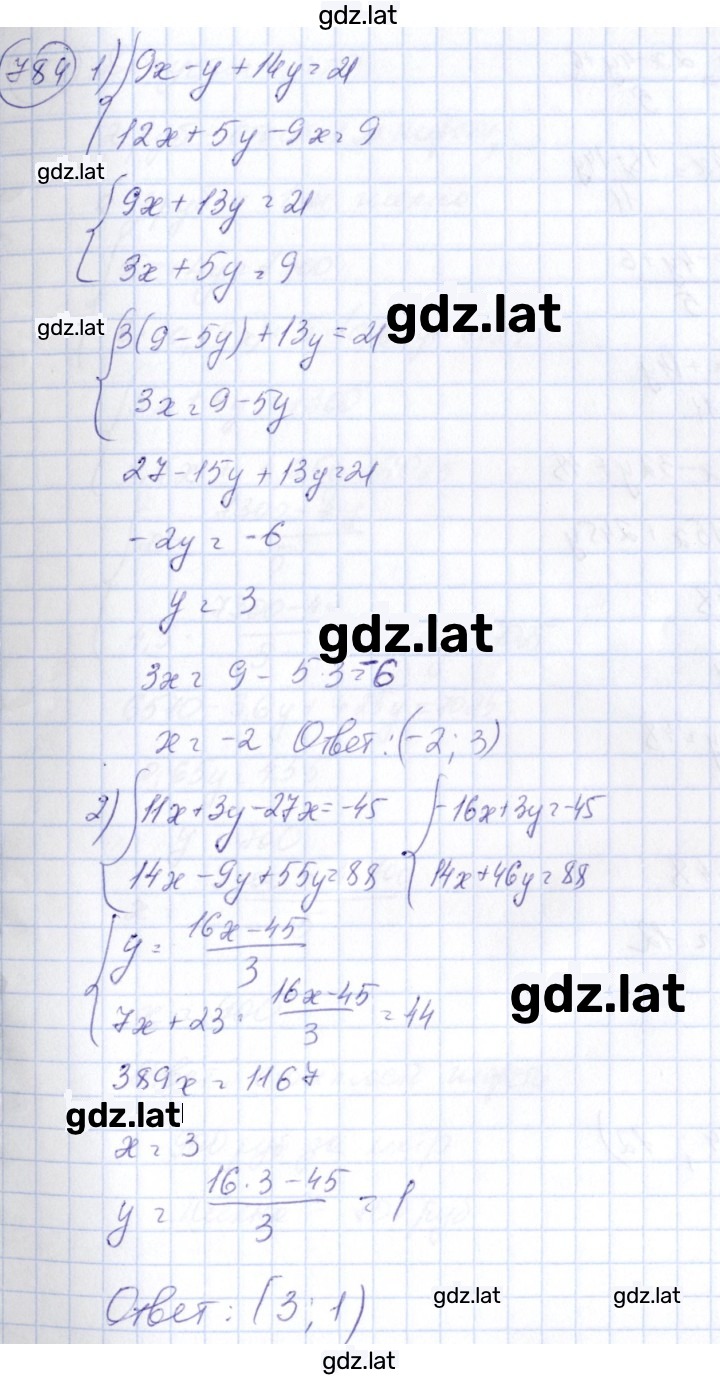 gdz.lat
784 1) { 9x - y + 14y = 21
12x + 5y - 9x = 9
gdz.lat
{ 9x + 13y = 21
3x + 5y = 9
gdz.lat
gdz.lat
{ 3(9 - 5y) + 13y = 21
3x = 9 - 5y
27 - 15y + 13y = 21
-2y = -6
y = 3
gdz.lat
3x = 9 - 5·3 = -6
x = -2 Ответ: (-2; 3)
2) { 11x + 3y - 27x = -45 { -16x + 3y = -45
14x - 9y + 55y = 88 14x + 46y = 88
{ y = (16x - 45)/3
gdz.lat
7x + 23 · (16x - 45)/3 = 44
389x = 1167
gdz.lat
x = 3
y = (16·3 - 45)/3 = 1
gdz.lat gdz.lat
Ответ: (3; 1)
gdz.lat